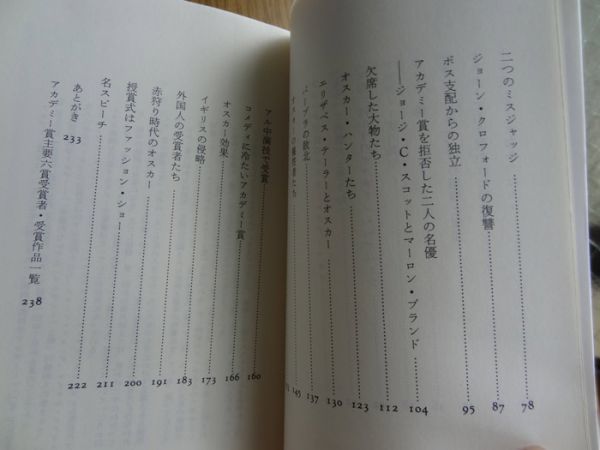 二つのミスジャッジ……78
ジョーン・クロフォードの復讐……87
ボス支配からの独立……95
アカデミー賞を拒否した二人の名優
――ジョージ・C・スコットとマーロン・ブランド……104
欠席した大物たち……112
オスカー・ハンターたち……123
エリザベス・テーラーとオスカー……130
の敗北……137
たち……145
アル中演技で受賞……160
コメディに冷たいアカデミー賞……166
オスカー効果……173
イギリスの侵略……183
外国人の受賞者たち……191
赤狩り時代のオスカー……200
授賞式はファッション・ショー……211
名スピーチ……222
あとがき 233
アカデミー賞主要六賞受賞者・受賞作品一覧 238